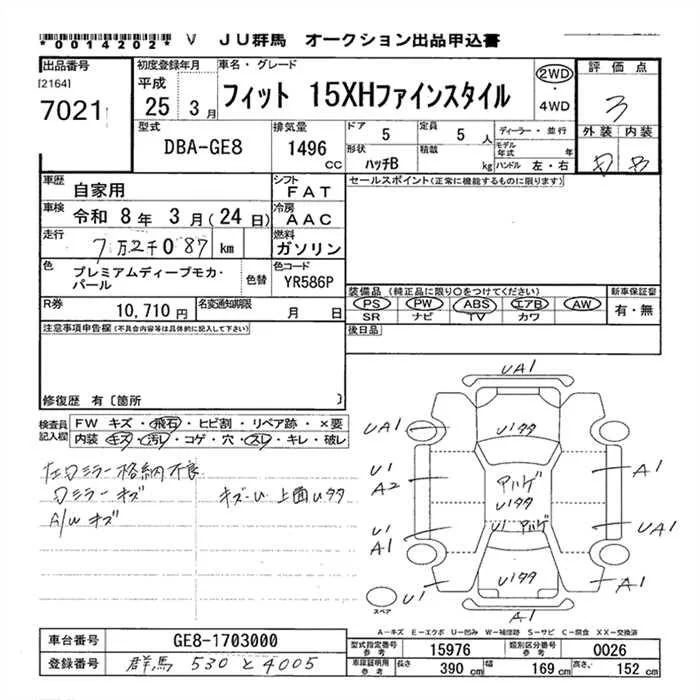 *0014202* V JU群馬 オークション出品申込書
出品番号
[2164]
7021
初度登録年月
平成
25 3月
車名・グレード
フィット 15XHファインスタイル
2WD
・
4WD
評価点
3
外装 内装
型式
DBA-GE8
排気量
1496
CC
ドア
5
定員
5人
ディーラー・並行
モデル年式 年
形状
ハッチB
積載
kg
ハンドル 左・右
車歴
自家用
シフト
FAT
セールスポイント(正常に機能するものに限ります)
車検
令和 8年 3月(24日)
冷房
AAC
走行
7万2千087 km
燃料
ガソリン
色
プレミアムディープモカ・パール
色替
色コード
YR586P
装備品(純正品に限り〇をつけてください)
PS PW ABS エアB AW
SR ナビ TV カワ
新車保証書
有・無
R券
10,710円
名変通知期限
月 日
後日品
注意事項申告欄(不具合内容等は具体的に記入して下さい)
修復歴 有〔箇所 〕
検査員記入欄
FW キズ・飛石・ヒビ割・リペア跡・×要
内装 キズ・汚レ・コゲ・穴・スレ・キレ・破レ
左ロミラー格納不良
ロミラー キズ
キズ・U 上面Uタタ
A/W キズ
UA1
UA1
Uィタタ
U1
A2
アハゲ
Uィタタ
A1
U1
A1
U1 アハゲ
UA1
U1
Uィタタ
A1
A1
スペア
A－キズ E－エクボ U－凹み W－補修跡 S－サビ C－腐食 XX－交換済
車台番号
GE8-1703000
型式指定番号参考
15976
類別区分番号参考
0026
登録番号
群馬 530 と 4005
車庫証明用参考
長さ 390 cm
幅 169 cm
高さ 152 cm